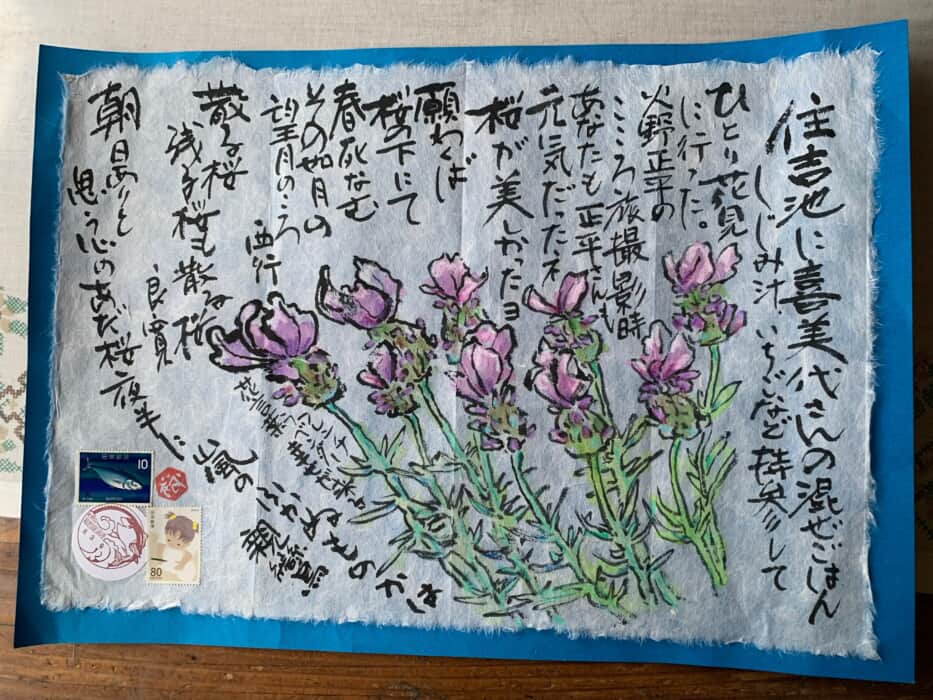 住吉池に喜美代さんの混ぜごはん
しじみ汁、いちごなど持参して
ひとり花見
に行った。
火野正平の
こころ旅撮影時
あなたも正平さんも
元気だったネ
桜が美しかったヨ
願わくば
桜の下にて
春死なむ
その如月の
望月のころ
西行
散る桜
残る桜も散る桜
良寛
朝日ありと
思う心のあだ桜夜半に
嵐の
ふかぬものかは
親鸞
花言葉
10
80